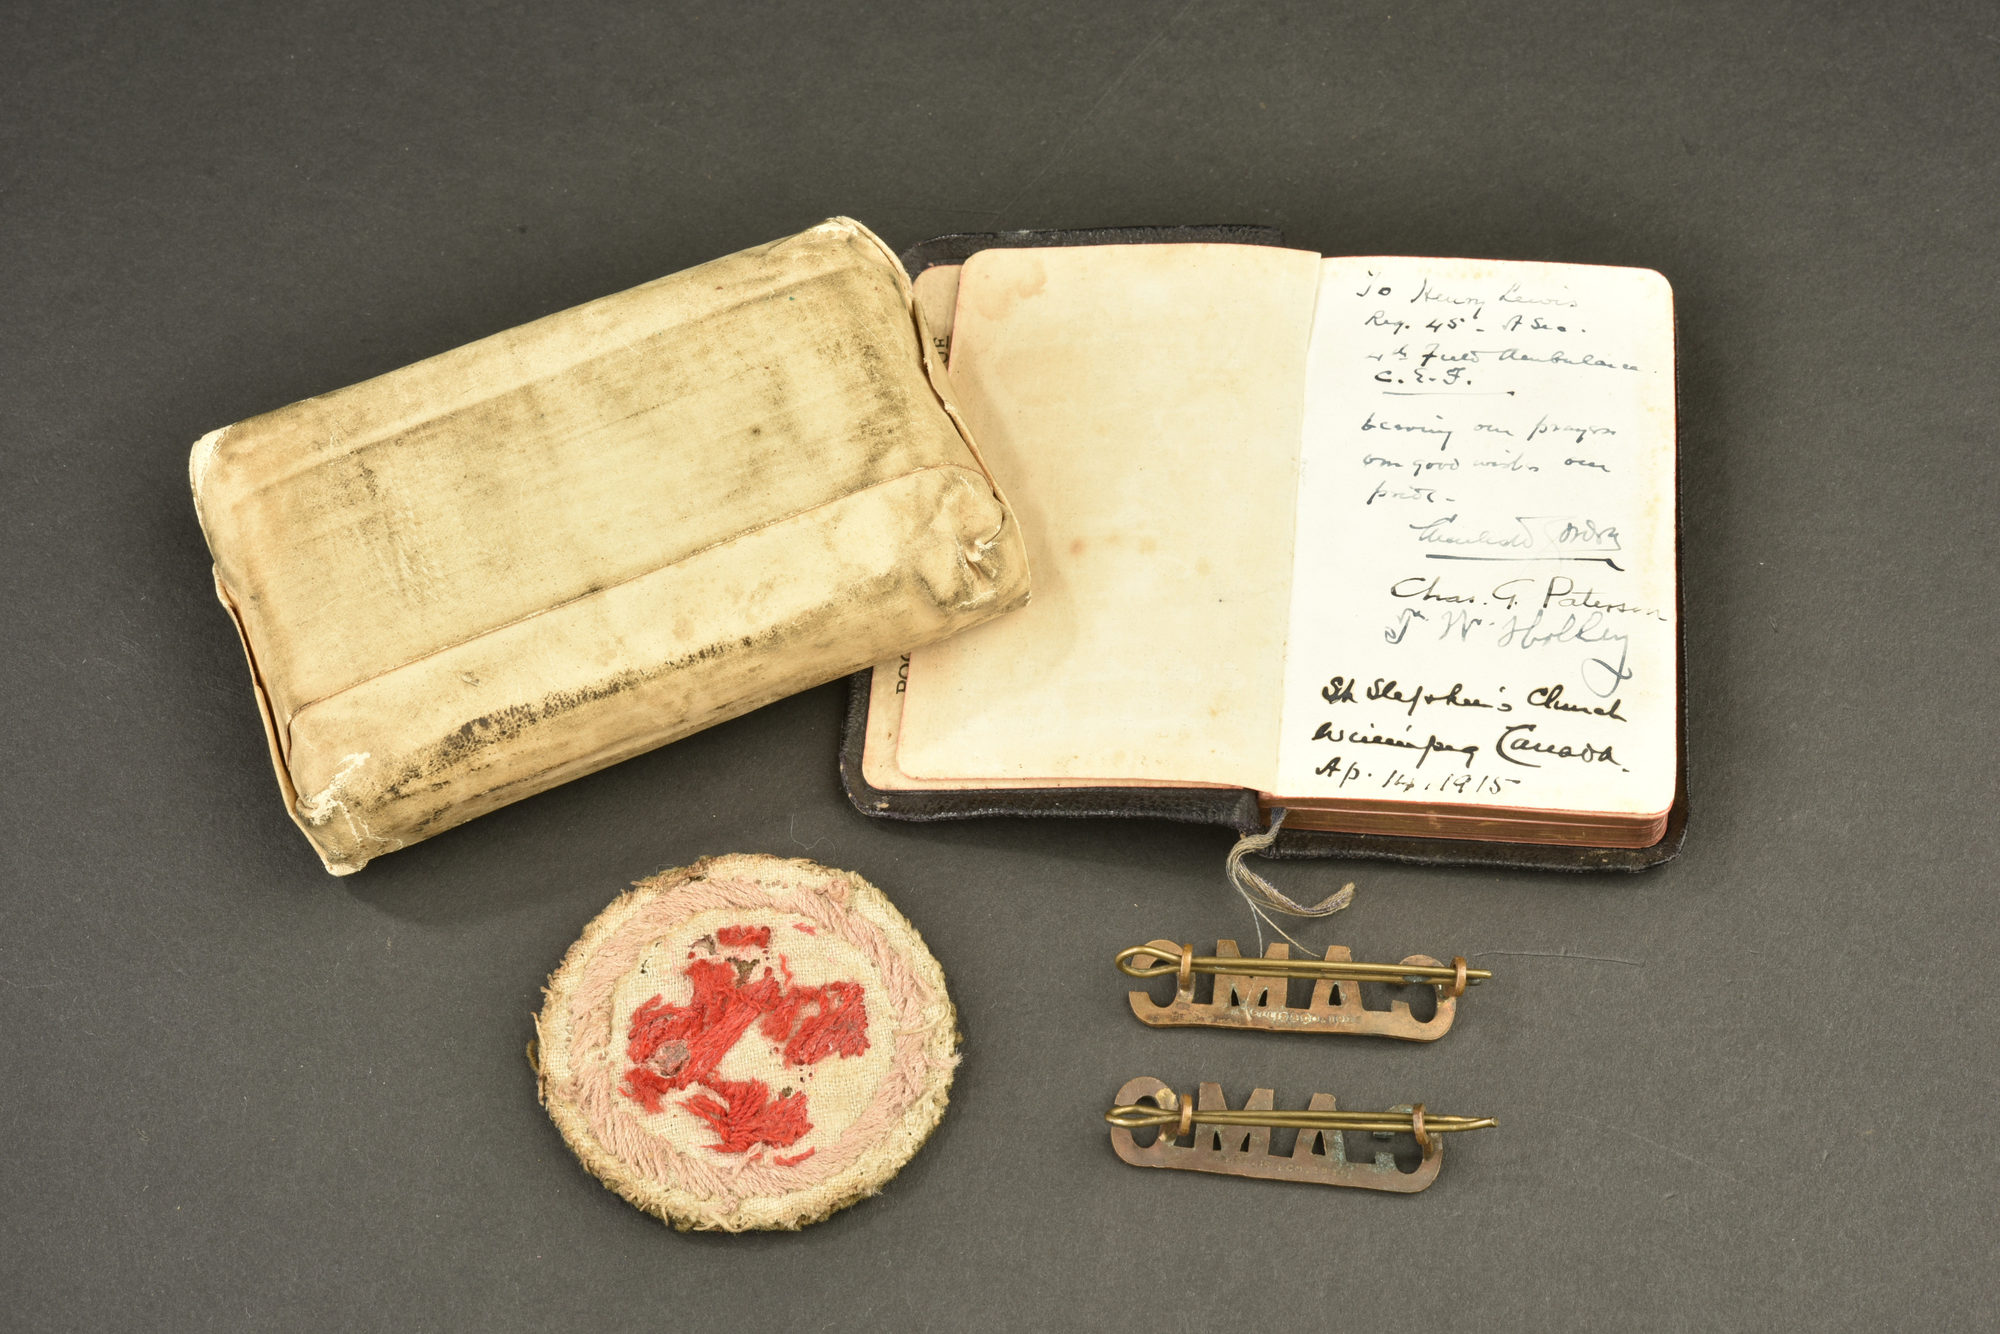 To Henry Lewis
Reg. 45 - A Sec.
4th Field Ambulance
C. E. F.
bearing our prayers
our good wishes our
pride -
Gordon
Chas. G. Paterson
W. Holley
St Stephen's Church
Winnipeg Canada.
Ap. 14, 1915
C.A.M.C
C.A.M.C